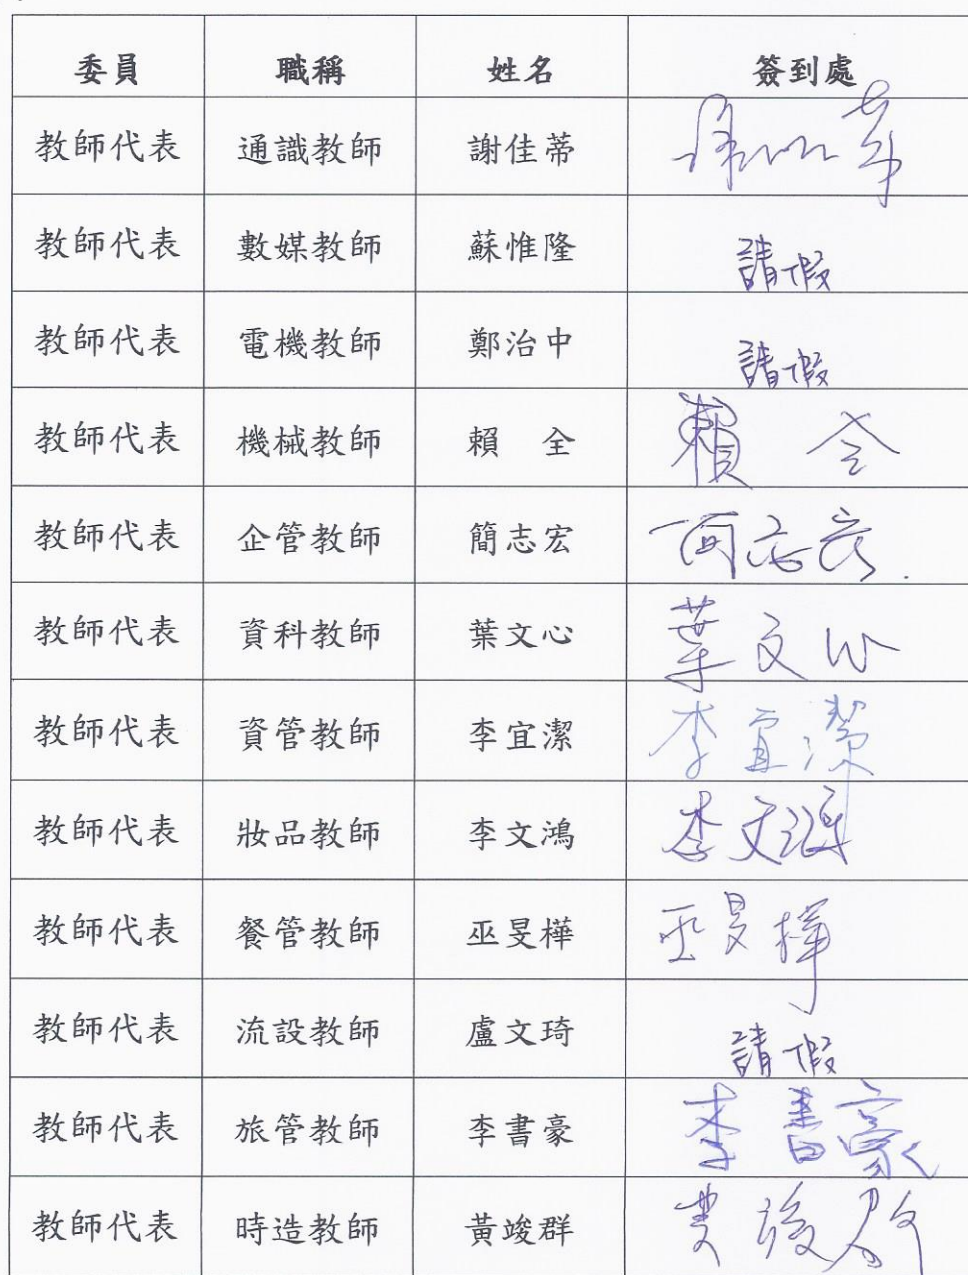 委員 職稱 姓名 簽到處
教師代表 通識教師 謝佳蒂
教師代表 數媒教師 蘇惟隆 請假
教師代表 電機教師 鄭治中 請假
教師代表 機械教師 賴 全 賴 全
教師代表 企管教師 簡志宏 簡志宏
教師代表 資科教師 葉文心 葉文心
教師代表 資管教師 李宜潔 李宜潔
教師代表 妝品教師 李文鴻 李文鴻
教師代表 餐管教師 巫旻樺 巫旻樺
教師代表 流設教師 盧文琦 請假
教師代表 旅管教師 李書豪 李書豪
教師代表 時造教師 黃竣群